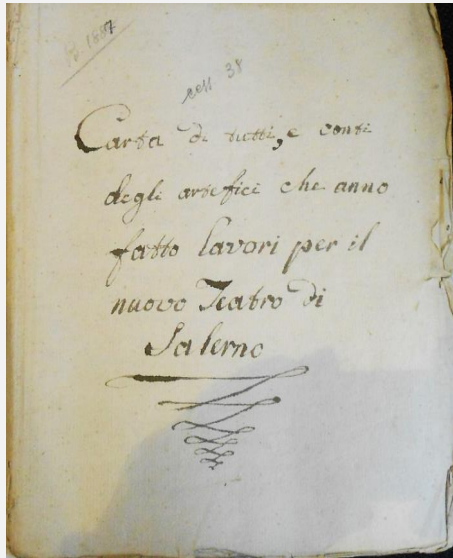 B. 1687
38
Carta di tutti, e conti
degli artefici che anno
fatto lavori per il
nuovo Teatro di
Salerno